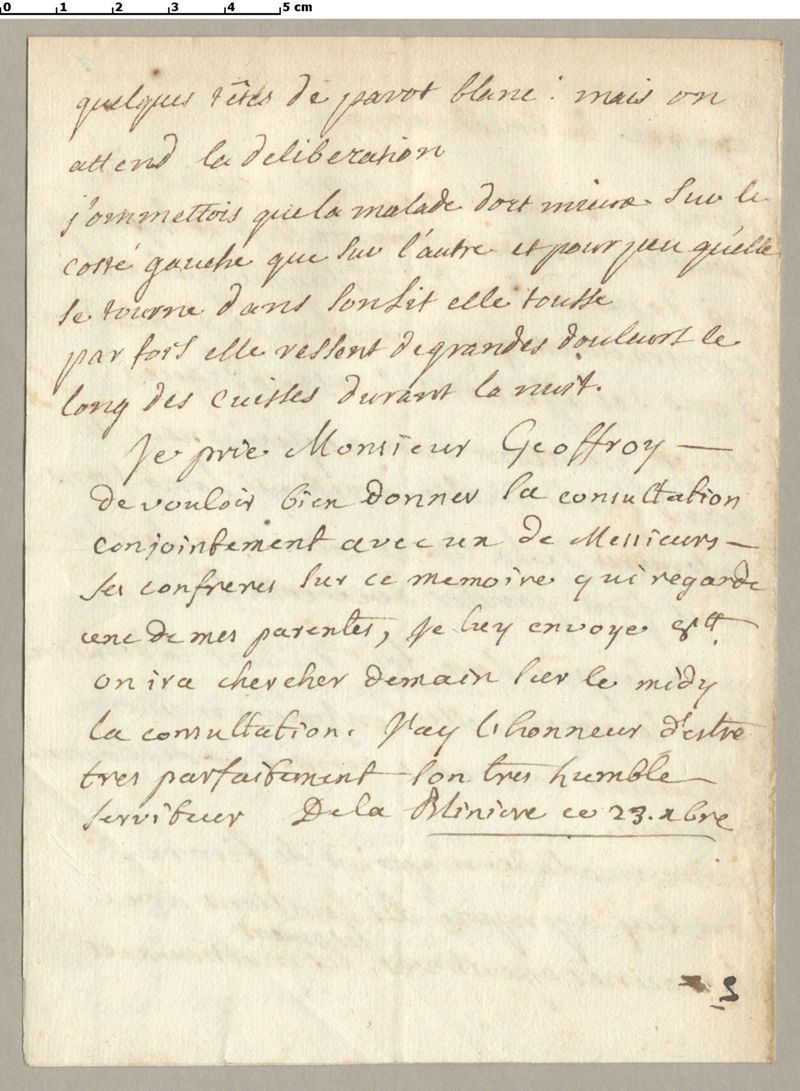 0 1 2 3 4 5 cm
quelques têtes de pavot blanc : mais on
attend la deliberation
j'ommettois que la malade dort mieux sur le
costé gauche que sur l'autre et pour peu qu'elle
se tourne dans son Lit elle tousse
par fois elle ressent de grandes douleurs le
long des cuisses durant la nuit.
Je prie Monsieur Geoffroy —
de vouloir bien donner la consultation
conjointement avec un de Messieurs —
ses confreres sur ce memoire qui regarde
une de mes parentes, je luy envoye
on ira chercher demain sur le midy
la consultation. J'ay l'honneur d'estre
tres parfaitement son tres humble
serviteur De la Bliniere ce 23. xbre